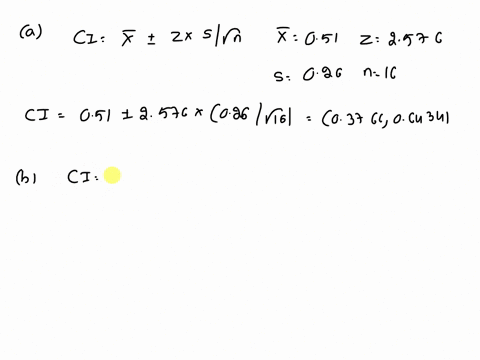 (a) CI: x̄ ± z× s/√n x̄ = 0.51 z= 2.576
s= 0.26 n=16
CI = 0.51 ± 2.576 × (0.26/√16) = (0.3766, 0.6434)
(b) CI: